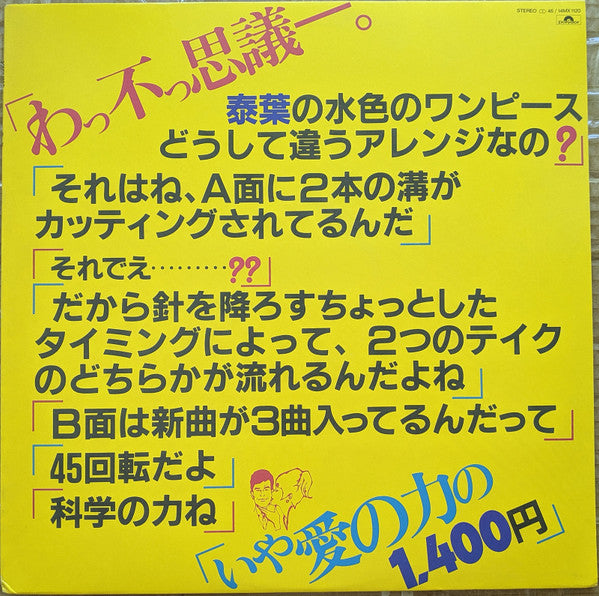 STEREO 45 / 14MX 1120
polydor
「わっ不っ思議ー。
泰葉の水色のワンピース
どうして違うアレンジなの?」
「それはね、A面に2本の溝が
カッティングされてるんだ」
「それでえ………??」
「だから針を降ろすちょっとした
タイミングによって、2つのテイク
のどちらかが流れるんだよね」
「B面は新曲が3曲入ってるんだって」
「45回転だよ」
「科学の力ね」
「いや愛の力の
1,400円」